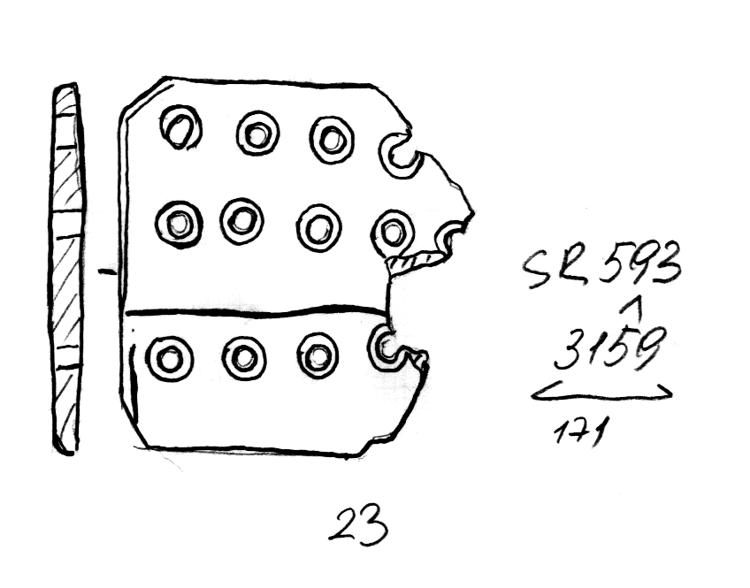 SR 593
^
3159
171
23